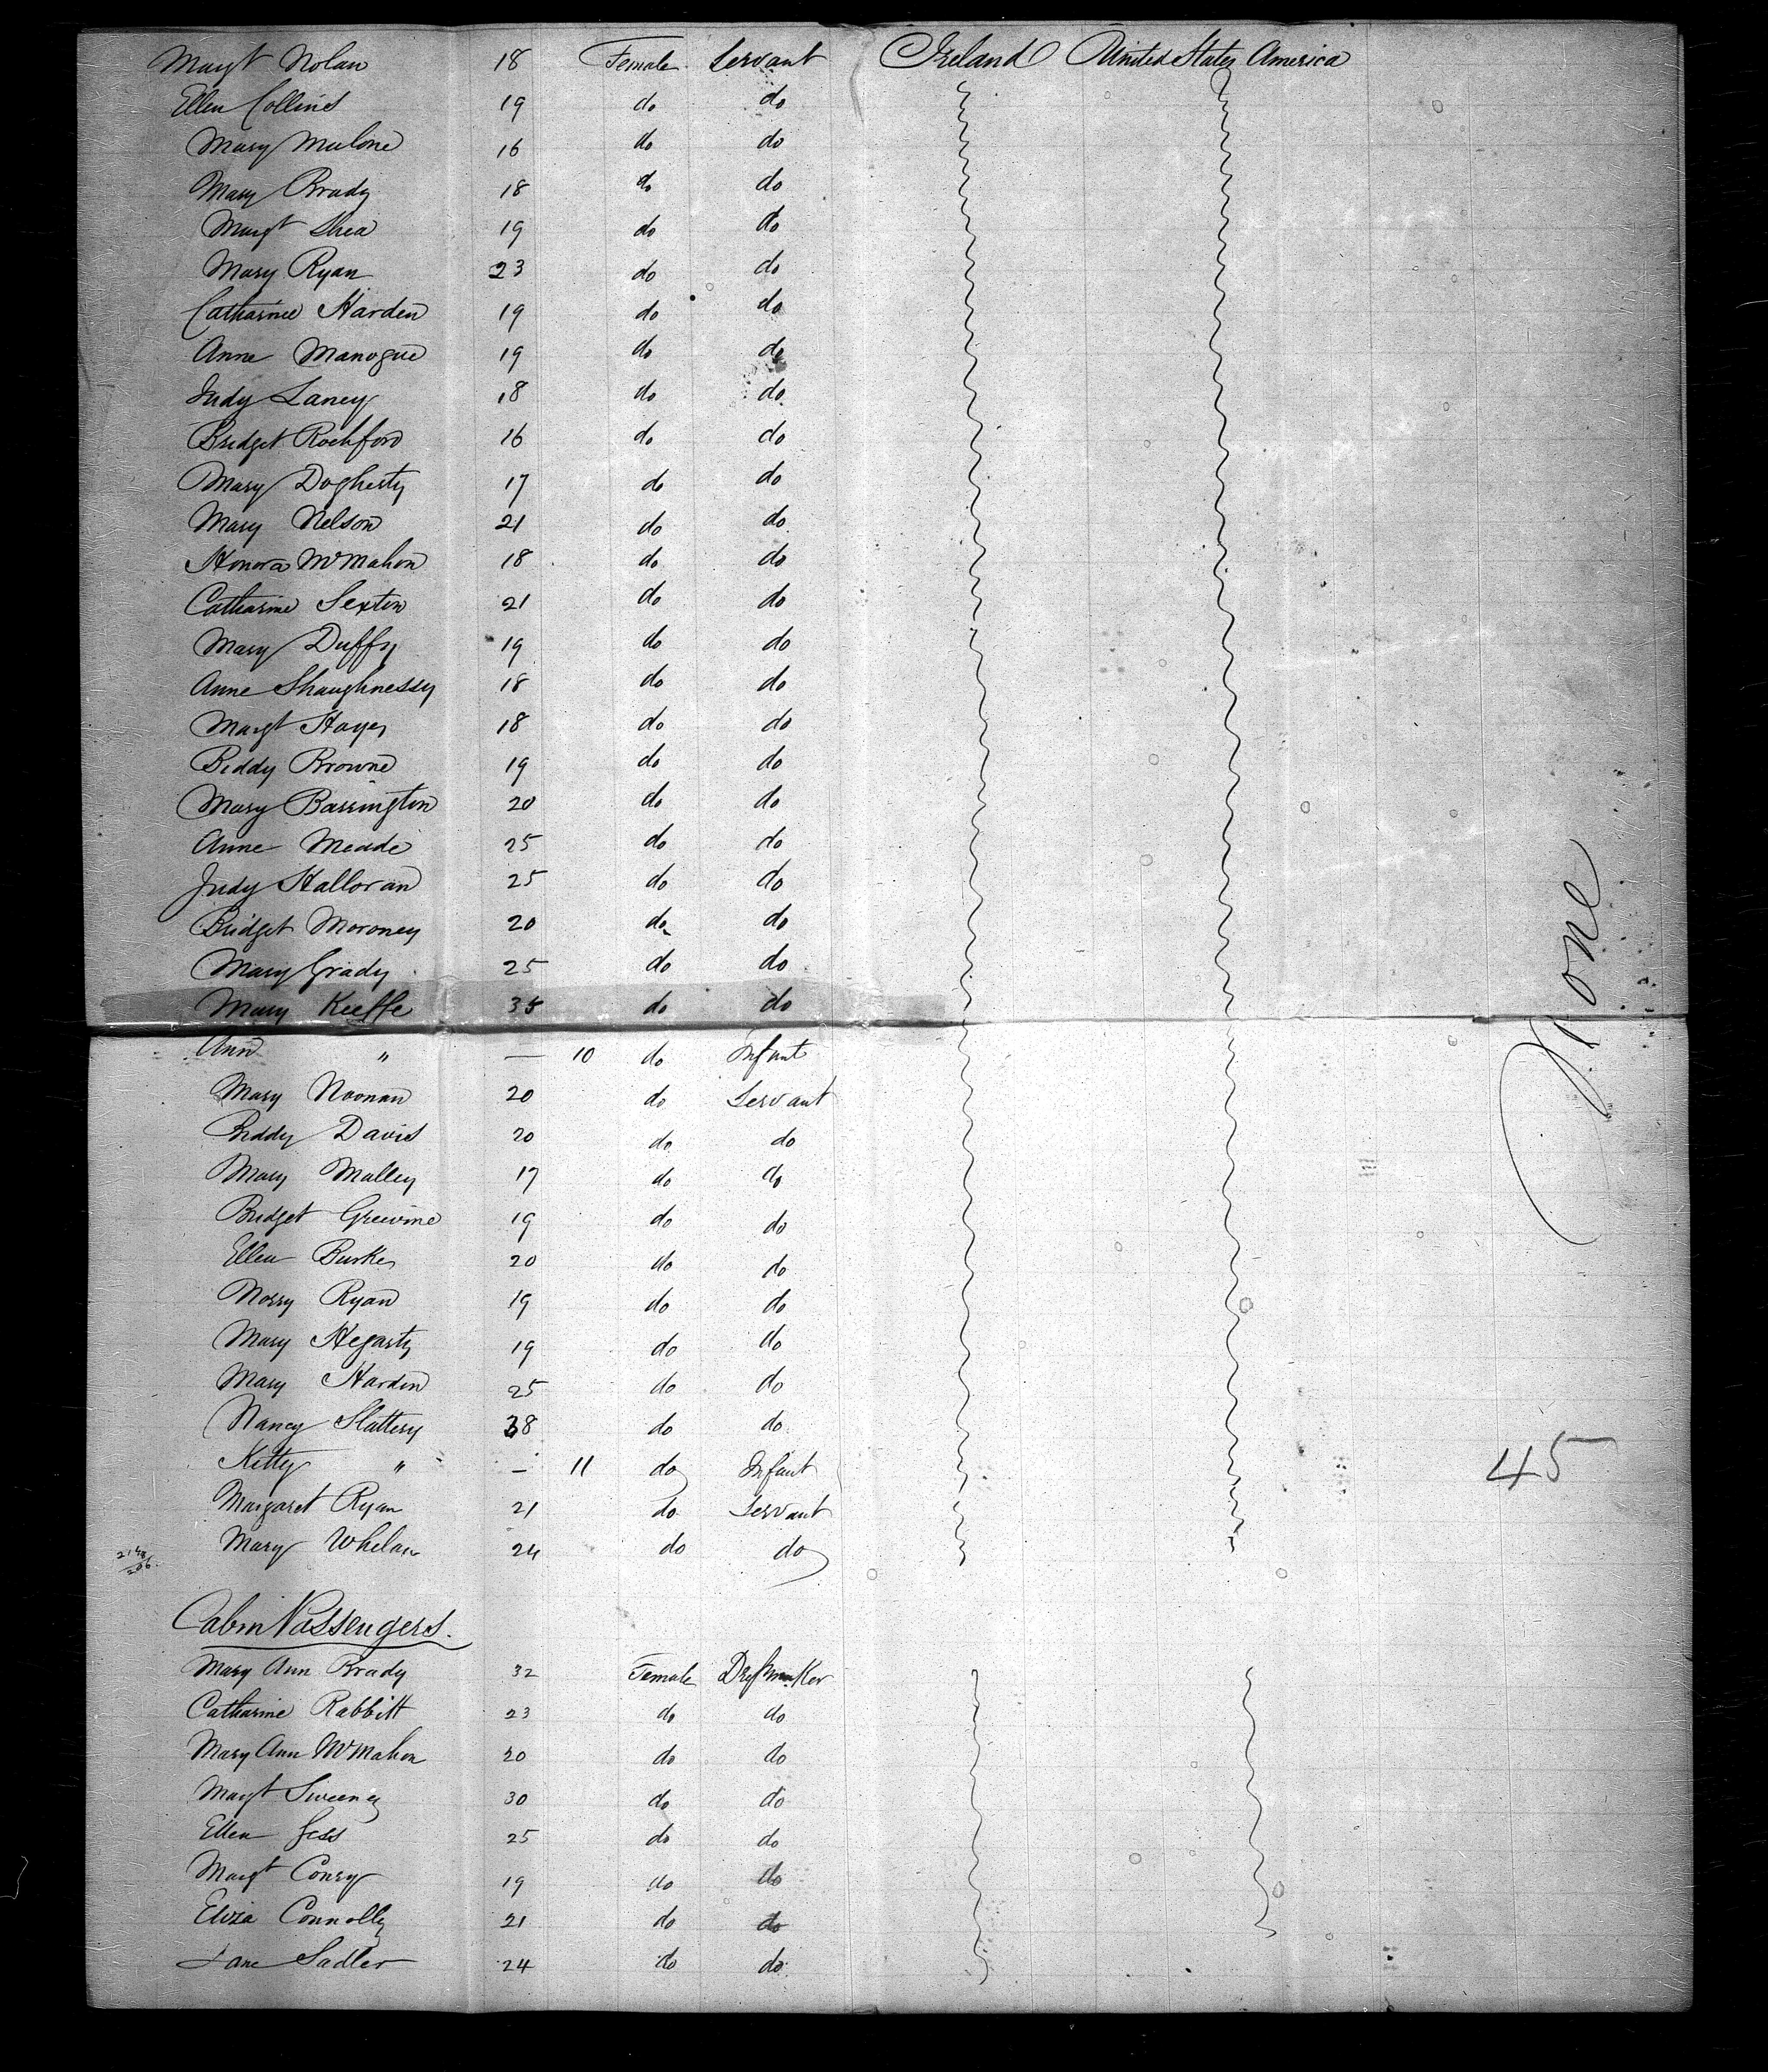 Margt Nolan 18 Female Servant Ireland United States America
Ellen Collins 19 do do
Mary Malone 16 do do
Mary Brady 18 do do
Margt Shea 19 do do
Mary Ryan 23 do do
Catharine Harden 19 do do
Anne Manogue 19 do do
Judy Laney 18 do do
Bridget Rochford 16 do do
Mary Dogherty 17 do do
Mary Nelson 21 do do
Honora McMahon 18 do do
Catharine Sexton 21 do do
Mary Duffy 19 do do
Anne Shaughnessy 18 do do
Margt Hayes 18 do do
Biddy Browne 19 do do
Mary Barrington 20 do do
Anne Meade 25 do do
Judy Halloran 25 do do
Bridget Moroney 20 do do
Mary Grady 25 do do
Mary Keeffe 35 do do
Ann " — 10 do Infant
Mary Noonan 20 do Servant
Biddy Davis 20 do do
Mary Malley 17 do do
Bridget 19 do do
Ellen Burke 20 do do
Norry Ryan 19 do do
Mary Hegarty 19 do do
Mary Harden 25 do do
Nancy Slattery 38 do do
Kitty " — 11 do Infant
Margaret Ryan 21 do Servant
Mary Whelan 24 do do
Cabin Passengers.
Mary Ann Brady 32 Female Dressmaker
Catharine Rabbitt 23 do do
Mary Ann McMahon 20 do do
Margt Sweeney 30 do do
Ellen 25 do do
Margt Conry 19 do do
Eliza Connolly 21 do do
Jane Sadler 24 do do
None
45